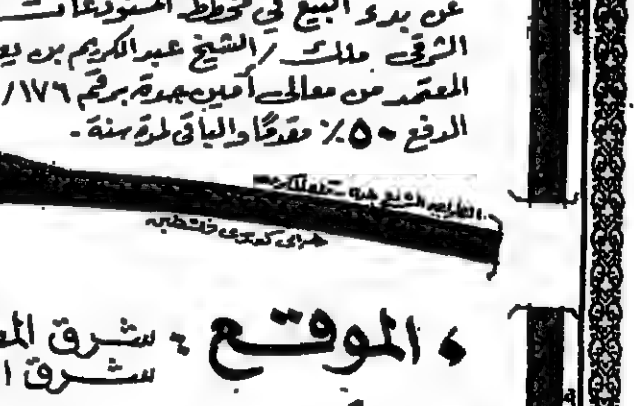 عن بدء البيع في مخطط المستودعات
الشرقي ملك / الشيخ عبدالكريم بن
المعتمد من معالي أمين جدة برقم ١٧٦/
الدفع ٥٠٪ مقدمًا والباقي لمدة سنة.
فلسطين
الموقع : شرق
شرق